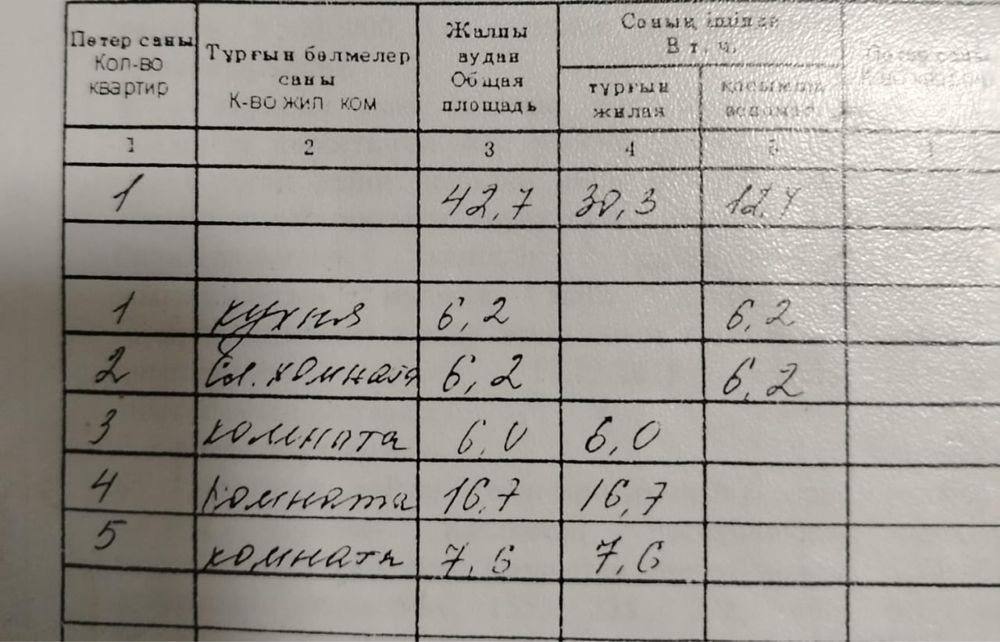 Пәтер саны
Кол-во
квартир
Тұрғын бөлмелер
саны
К-во жил ком
Жалпы
аудан
Общая
площадь
Соның ішінде
В т. ч.
тұрғын
жилая
қосымша
Пәтер саны
1 2 3 4 5
1 42,7 30,3 12,4
1 кухня 6,2 6,2
2 Ел. комната 6,2 6,2
3 комната 6,0 6,0
4 комната 16,7 16,7
5 комната 7,6 7,6